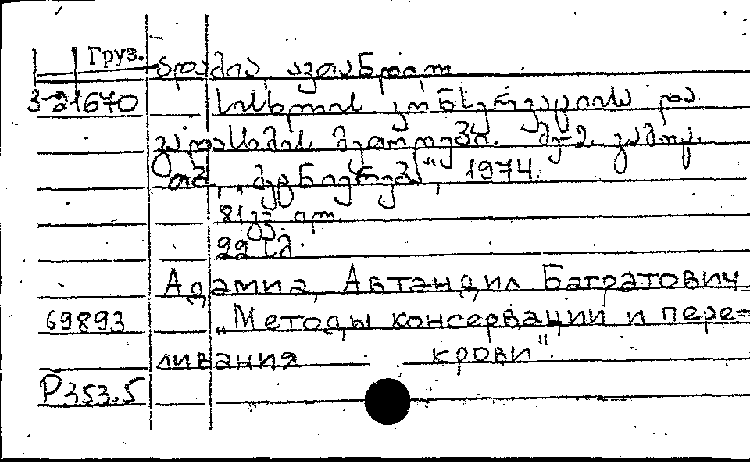 Груз. ადამია, ავთანდილ
3-21670 სისხლის კონსერვაციისა და
გადასხმის მეთოდები. მე-2 გამოც.
თბ., „მეცნიერება“, 1974.
81 გვ. ილ.
22 სმ.
Адамиа, Автандил Багратович
69893 „Методы консервации и пере-
ливания крови".
Р353.5